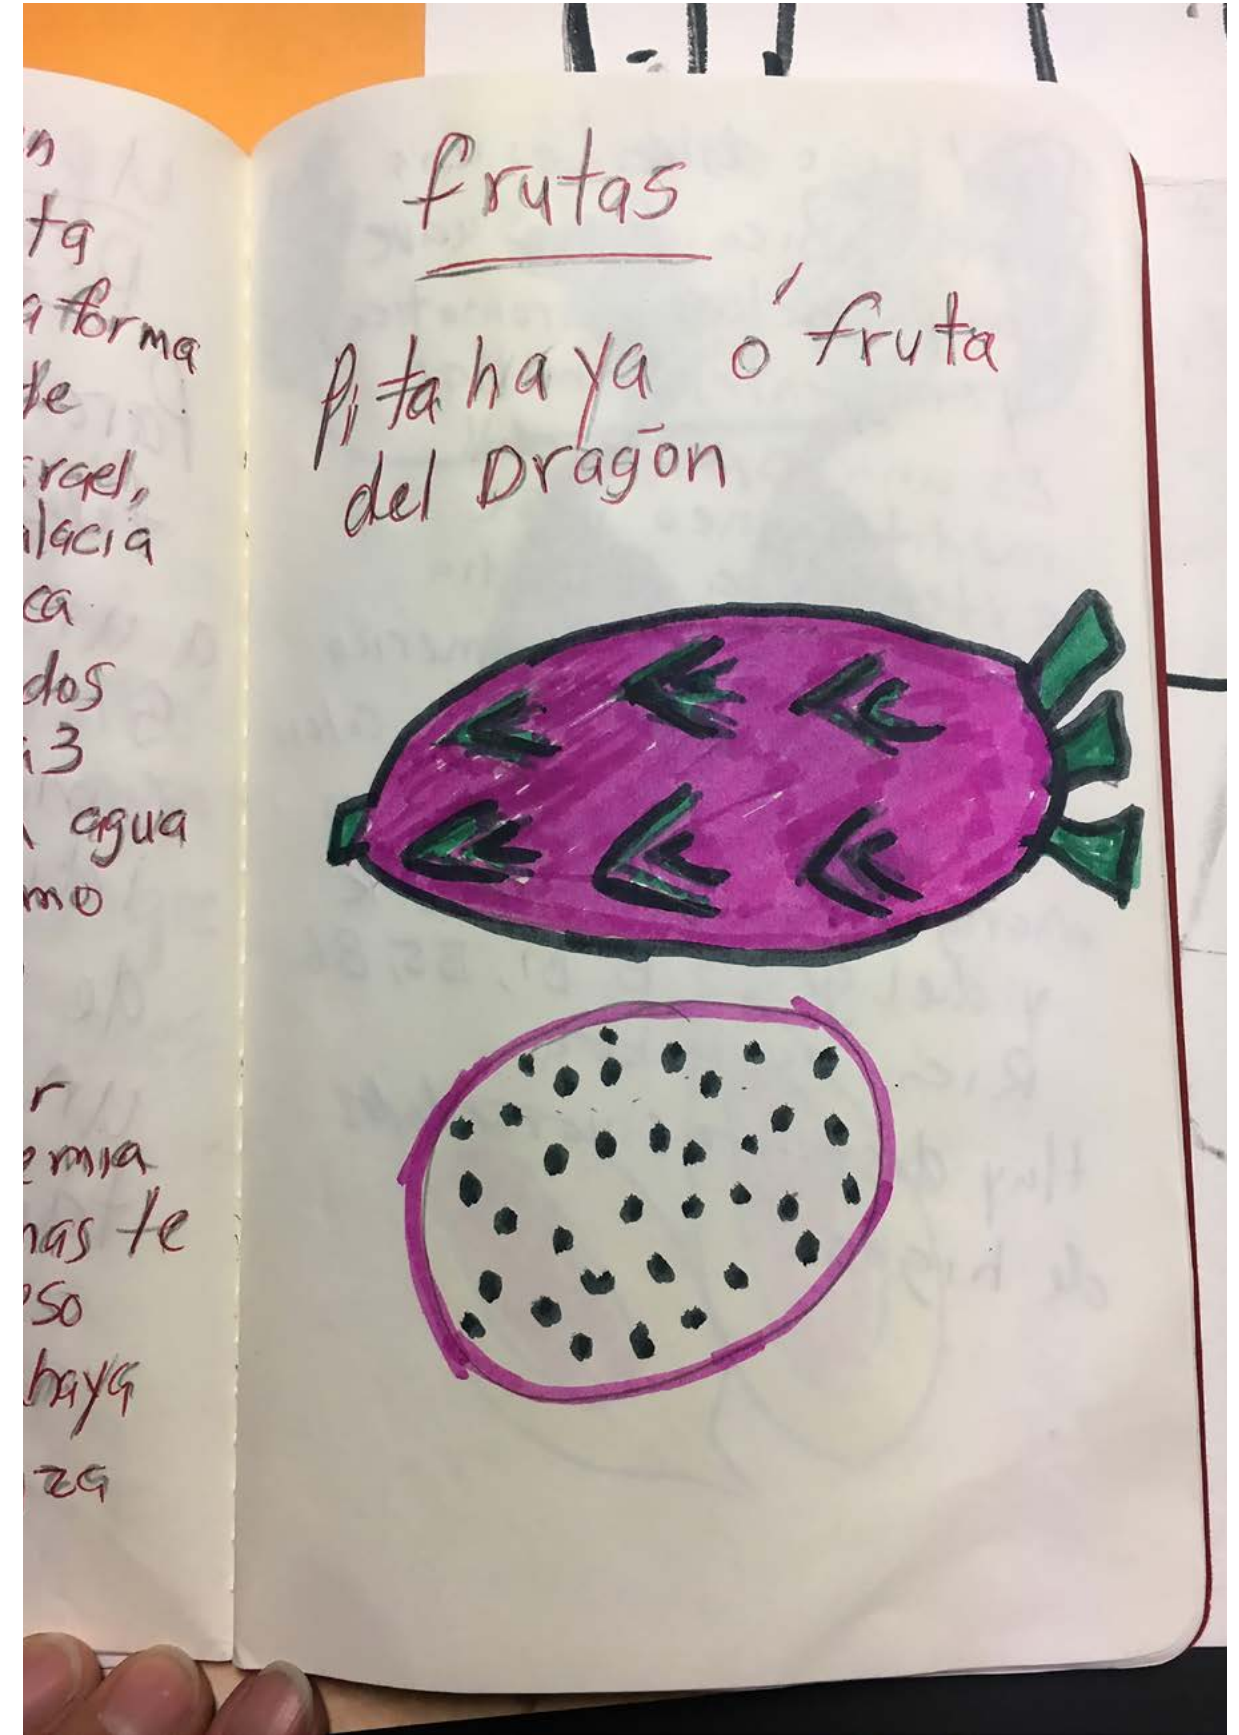 ta
a forma
de
rael,
lacia
ca
dos
a 3
agua
mo
r
emia
nas te
eso
haya
za
frutas
Pitahaya ó fruta
del Dragón